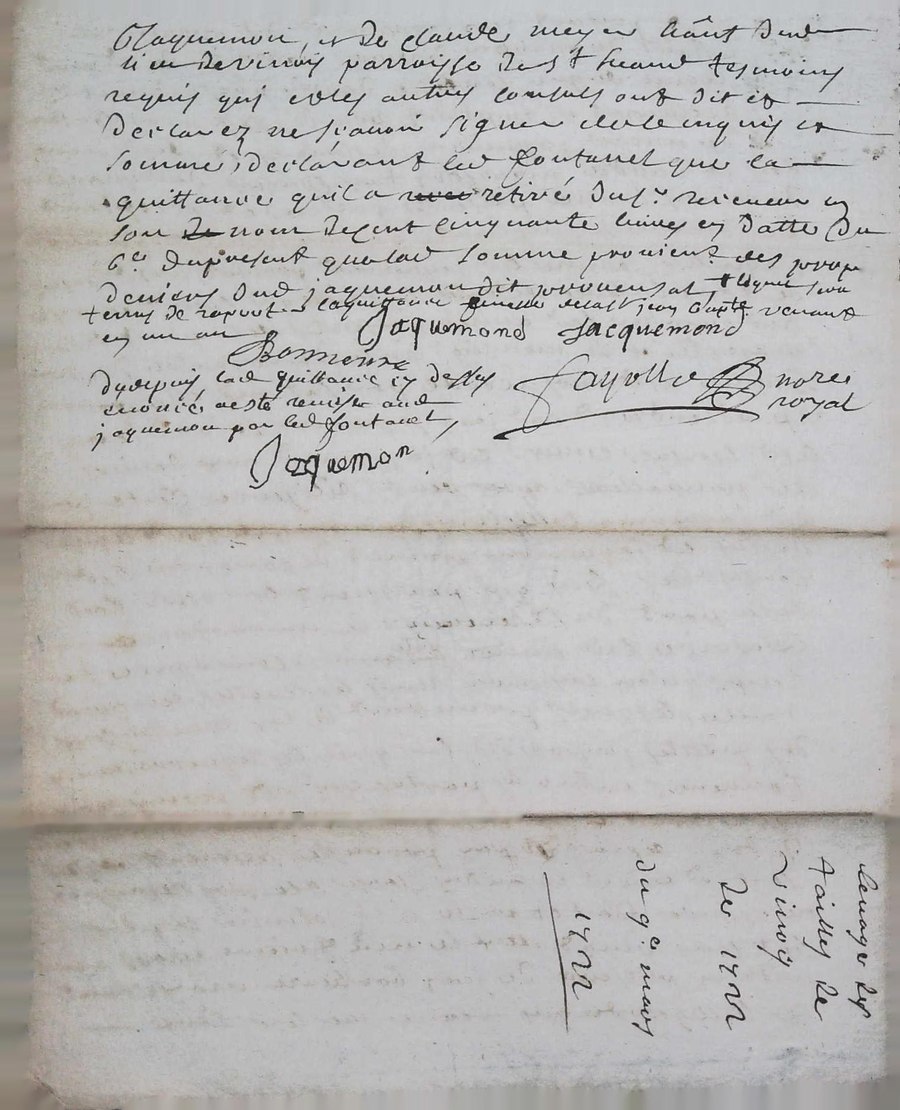 Jaquemon, et de claude meyer hâut dud
lieu de vinois parroisse de st heand tesmoins
requis qui et les autres consuls ont dit et
declarez ne sçavoir signer de ce enquis et
sommé, declarant led fontanel que la
quittance quil a retiré du sr. receveur en
son de nom de cent cinquante livres en datte du
6e. du present que lad somme provient des propr
deniers dud jaquemon dit
termes de raport la quittance finalle venant
en un an
Jaquemond Jacquemond
Bonnenne
Dudepuis lad quittance cy dessus
enoncée a esté remise aud
jaquemon par led fontanel,
fayolle nore
royal
Jaquemon
levage des
tailles de
vinois
de 1722
du 9e mars
1722